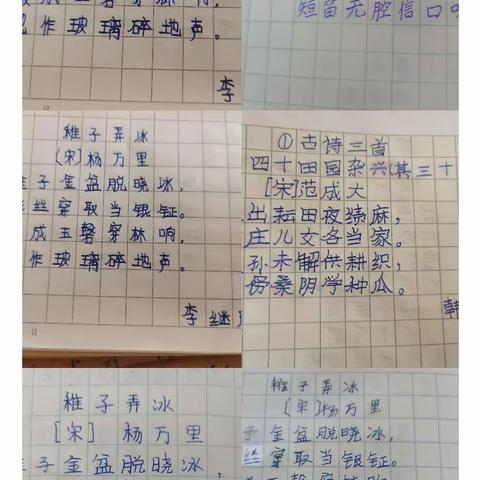 作玻璃碎地声。
李
短笛无腔信口
稚子弄冰
〔宋〕杨万里
子金盆脱晓冰,
丝穿取当银钲。
成玉磬穿林响,
作玻璃碎地声。
李继
①古诗三首
四十田园杂兴(其三十
[宋]范成大
出耘田夜绩麻,
庄儿女各当家。
孙未解供耕织,
傍桑阴学种瓜。
韩
稚子弄冰
[宋] 杨万里
子金盆脱晓冰,
稚子弄冰
〔宋〕杨万里
子金盆脱晓冰,
丝穿取当银钲。